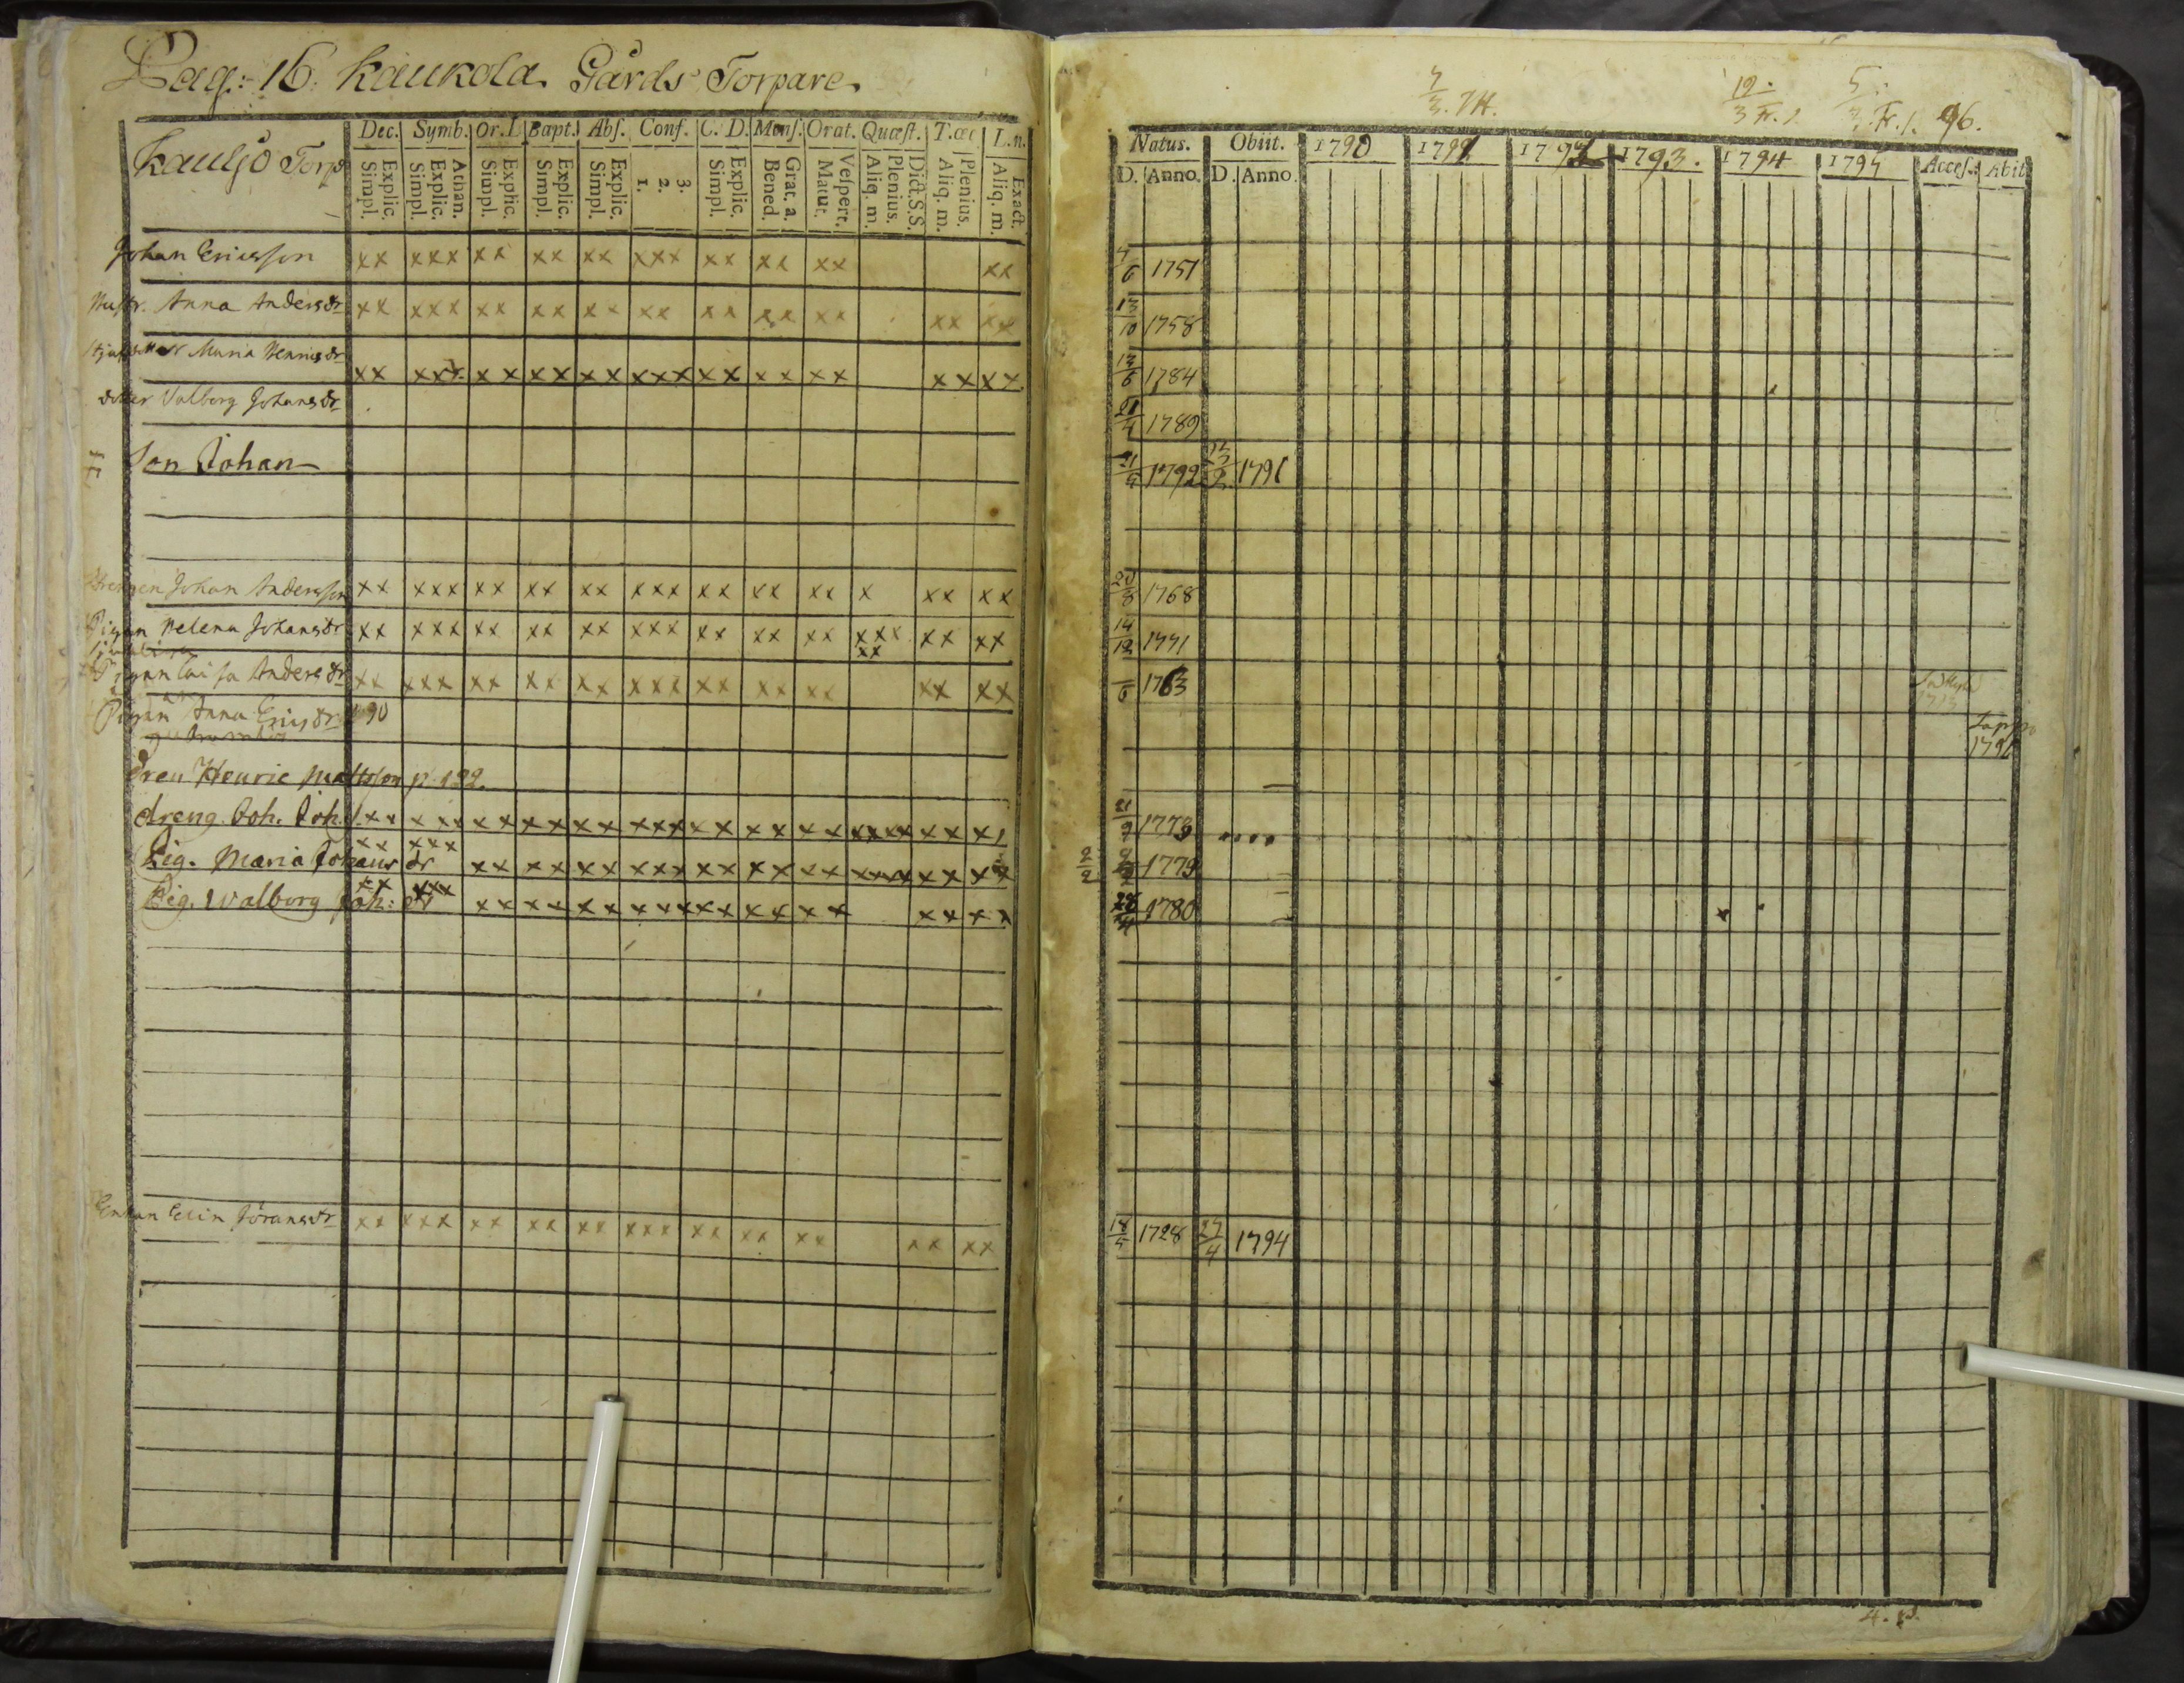 Pag: 16. Kaukola Gårds Torpare.
Dec. Symb. Or. D. Bapt. Abs. Conf. C. D. Mens. Orat. Quæst. T. œc L. n.
Explic. Simpl. Athan. Explic. Simpl. Explic. Simpl. Explic. Simpl. Explic. Simpl. 3. 2. 1. Explic. Simpl. Grat. a. Bened. Vespert. Matut. Dict. S. S. Plenius. Aliq. m. Plenius. Aliq. m. Exact. Aliq. m.
Torp
Johan Ericsson xx xxx xx xx xx xxx xx xx xx xx
Hustr. Anna Andersdr xx xxx xx xx xx xx xx xx xx xx xx
Maria Henricsdr xx xxx xx xx xx xxx xx xx xx xx xx
dotter Valborg Johansdr
Son Johan
Drengen Johan Andersson xx xxx xx xx xx xxx xx xx xx x xx xx
Pigan Helena Johansdr xx xxx xx xx xx xxx xx xx xx xxx xx xx xx
Pigan Caisa Andersdr xx xxx xx xx xx xxx xx xx xx xx xx
Pigan Anna Ericsdr 90
Dren Henric Mattsson p. 122.
dreng Joh. Joh. xx xxx xx xx xx xxx xx xx xx xxxx xx xx
Pig. Maria Johans dr xx xxx xx xx xx xxx xx xx xx xxxx xx xx
Pig. Walborg Joh: dr xx xxx xx xx xx xxx xx xx xx xx xx
Enkan Elin Jöransdr xx xxx xx xx xx xxx xx xx xx xx xx
96.
Natus. Obiit. 1790 1791 1792 1793. 1794 1795 Acces. Abit
D. Anno. D. Anno.
4/6 1751
13/10 1758
13/6 1784
1789
1792 1791
20/8 1768
14/12 1771
/6 1763
1791
21/9 1773
2/2 1779
28/4 1780
18/5 1728 27/4 1794